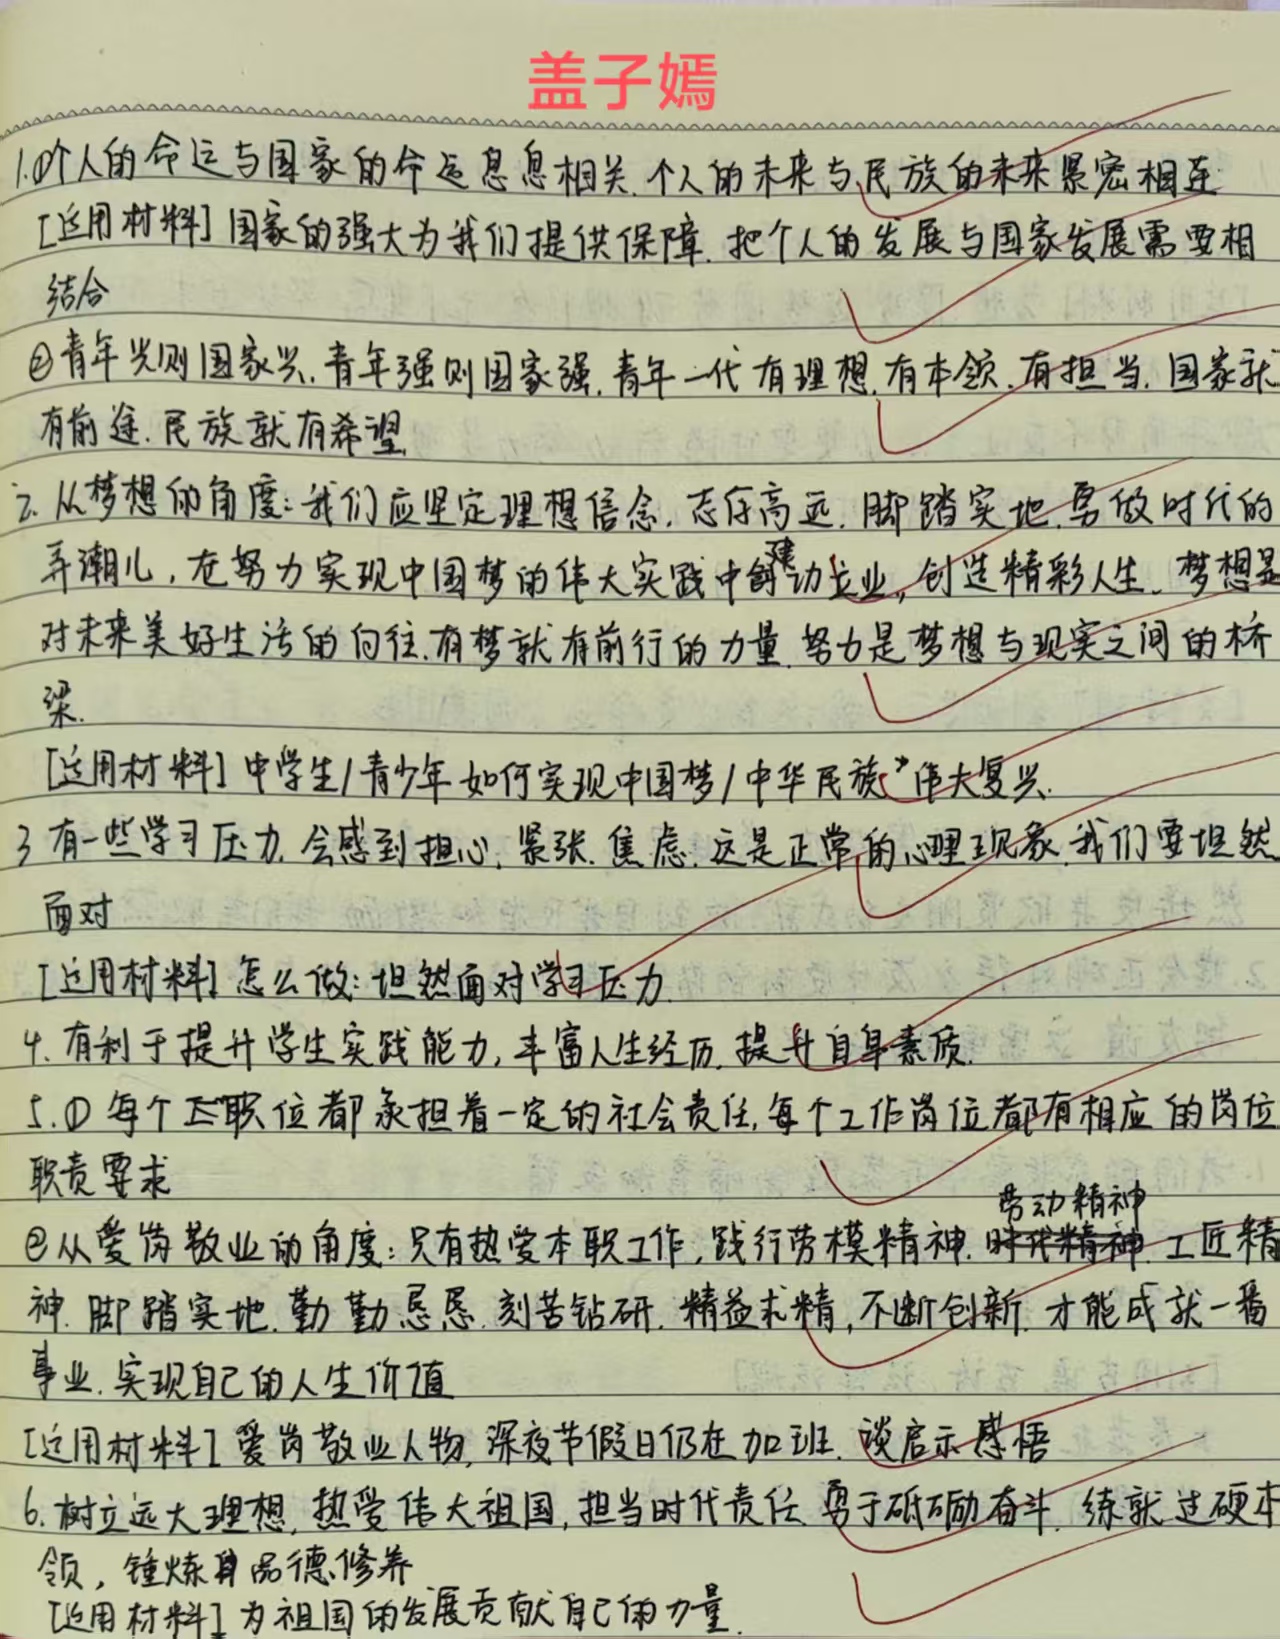 盖子嫣
1.①个人的命运与国家的命运息息相关.个人的未来与民族的未来紧密相连
[适用材料]国家的强大为我们提供保障.把个人的发展与国家发展需要相
结合
②青年兴则国家兴.青年强则国家强.青年一代有理想.有本领.有担当.国家就
有前途.民族就有希望.
2.从梦想的角度:我们应坚定理想信念.志存高远.脚踏实地.勇做时代的
弄潮儿,在努力实现中国梦的伟大实践中建功立业,创造精彩人生.梦想是
对未来美好生活的向往.有梦就有前行的力量.努力是梦想与现实之间的桥
梁.
[适用材料]中学生/青少年如何实现中国梦/中华民族"伟大复兴.
3有一些学习压力.会感到担心.紧张.焦虑.这是正常的心理现象.我们要坦然
面对
[适用材料]怎么做:坦然面对学习压力.
4.有利于提升学生实践能力,丰富人生经历.提升自身素质.
5.①每个职位都承担着一定的社会责任,每个工作岗位都有相应的岗位
职责要求
②从爱岗敬业的角度:只有热爱本职工作,践行劳模精神.劳动精神.工匠精
神.脚踏实地.勤勤恳恳.刻苦钻研.精益求精,不断创新.才能成就一番
事业.实现自己的人生价值
[适用材料]爱岗敬业人物,深夜节假日仍在加班.谈启示感悟
6.树立远大理想,热爱伟大祖国,担当时代责任.勇于砥砺奋斗.练就过硬本
领,锤炼品德修养
[适用材料]为祖国的发展贡献自己的力量.